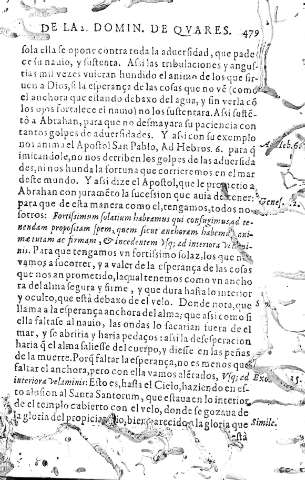 DE LA 2. DOMIN. DE QVARES. 479
sola ella se opone contra toda la aduersidad, que pade
ce su nauio, y sustenta. Assi las tribulaciones y angus-
tias mil vezes vuieran hundido el animo de los que sir-
uen a Dios, si la esperança de las cosas que no vé (como
el anchora que estando debaxo del agua, y sin verla cõ
los ojos fortalece el nauio) no los sustentara. Assi sustẽ-
tò a Abrahan, para que no desmayara su paciencia con
tantos golpes de aduersidades. Y assi con su exemplo
nos anima el Apostol San Pablo, Ad Hebros. 6. para q̃
imitandole, no nos derriben los golpes de las aduersida
des, ni nos hunda la fortuna que corrieremos en el mar
deste mundo. Y assi dize el Apostol, que le prometio a
Abrahan con juramẽto la sucession que auia de tener:
para que de esta manera como el, tengamos, todos no-
sotros: Fortissimum solatium habeamus qui confugimus ad te-
nendam propositam spem, quem sicut anchoram habemus ani-
mæ tutam ac firmam, & incedentem Vsq; ad interiora Velami-
nis. Para que tengamos vn fortissimo solaz, los que nos
vamos a socorrer, y a valer de la esperança de las cosas
que nos an prometido, la qual tenemos como vn ancho
ra del alma segura y firme, y que dura hasta lo interior
y oculto, que està debaxo de el velo. Donde nota, que
llama a la esperança anchora del alma; que assi como si
ella faltasse al nauio, las ondas lo sacarian fuera de el
mar, y se abriria y haria pedaços: assi la desesperacion
haria q̃ el alma saliesse del cuerpo, y diesse en las peñas
de la muerte. Porq̃ faltar la esperança, no es menos que
faltar el anchora, pero con ella vamos alẽtados, Vsq; ad
interiora velaminis: Esto es, hasta el Cielo, haziendo en es-
to alusion al Santa Santorum, que estaua en lo interior
de el templo cubierto con el velo, donde se gozaua de
la gloria del propiciatorio, bien parecido a la gloria que
està
Heb. 6.
Genes. 12
Exo. 25.
Simile.